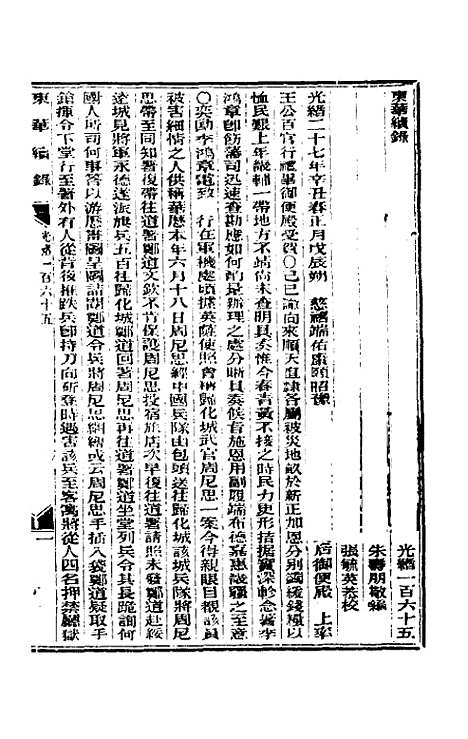 東華續錄
光緒一百六十五
朱壽朋敬編
張毓英恭校
光緒二十七年辛丑春正月戊辰朔 慈禧端佑康頤昭豫
后御便殿 上率
王公百官行禮畢御便殿受賀〇己巳諭向來順天直隸各屬被災地畝於新正加恩分別蠲緩錢糧以
恤民艱上年畿輔一帶地方不靖尚未查明具奏惟今春青黃不接之時民力更形拮据實深軫念著李
鴻章即飭藩司迅速查勘應如何酌量辦理之處分晰具奏候旨施恩用副履端布德嘉惠畿疆之至意
〇奕劻李鴻章電致 行在軍機處頃據英薩使照會稱歸化城武官周尼思一案今得親眼目覩該員
被害細情之人供稱華歷本年六月十八日周尼思經中國兵隊由包頭送往歸化城該城兵隊將周尼
思帶至同知署復帶往道署道文欽不肯保護周尼思投宿旅店次早復往道署請照未發鄭道赴綏
遠城見將軍永德遂派旗兵五百往歸化城鄭道回署周尼思再往道署鄭道坐堂列兵令其長跪詢何
國人所司何事答以游歷爾國呈國請護鄭道令兵將周尼思綑縛或云周尼思手插入袋鄭道疑取手
鎗揮令下堂行至署外有人從背後推跌兵即持刀向斫登時遇害該兵至客寓將從人四名押禁廳獄
東華續錄 光緒一百六十五